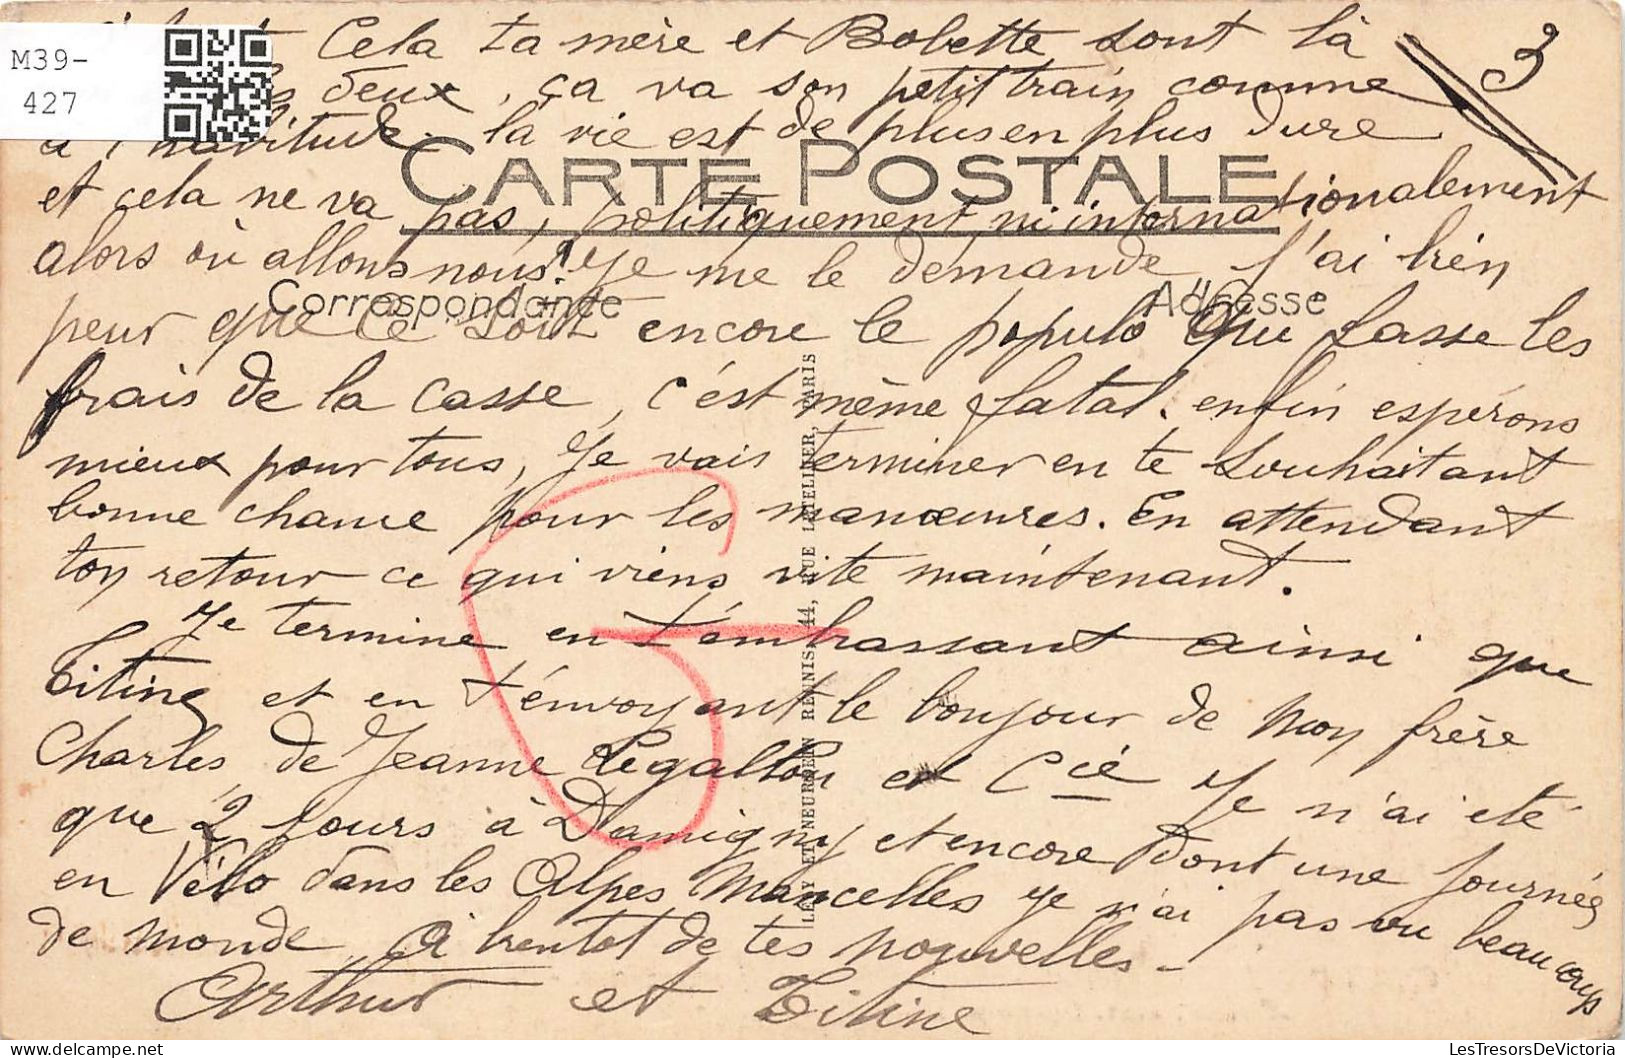 M39-
427
3
Cela ta mère et Bobette sont là
deux, ça va son petit train comme
à l'habitude. la vie est de plus en plus dure
CARTE POSTALE
et cela ne va pas, politiquement ni internationalement
alors où allons nous? Je me le demande, J'ai bien
Correspondance
Adresse
peur que ce soit encore le populo qui fasse les
frais de la casse, c'est même fatal. enfin espérons
mieux pour tous, Je vais terminer en te souhaitant
bonne chance pour les manœuvres. En attendant
ton retour ce qui viens vite maintenant.
Je termine en t'embrassant ainsi que
Titine et en t'envoyant le bonjour de mon frère
Charles, de Jeanne Legallou et Cie Je n'ai eté
que 2 jours à Damigny et encore dont une journée
en Vélo dans les Alpes Mancelles je n'ai pas vu beaucoup
de monde. A bientot de tes nouvelles -
Arthur et Titine
LEVY ET NEURDEIN REUNIS, 44, RUE LETELLIER, PARIS
LesTresorsDeVictoria
LesTresorsDeVictoria.com